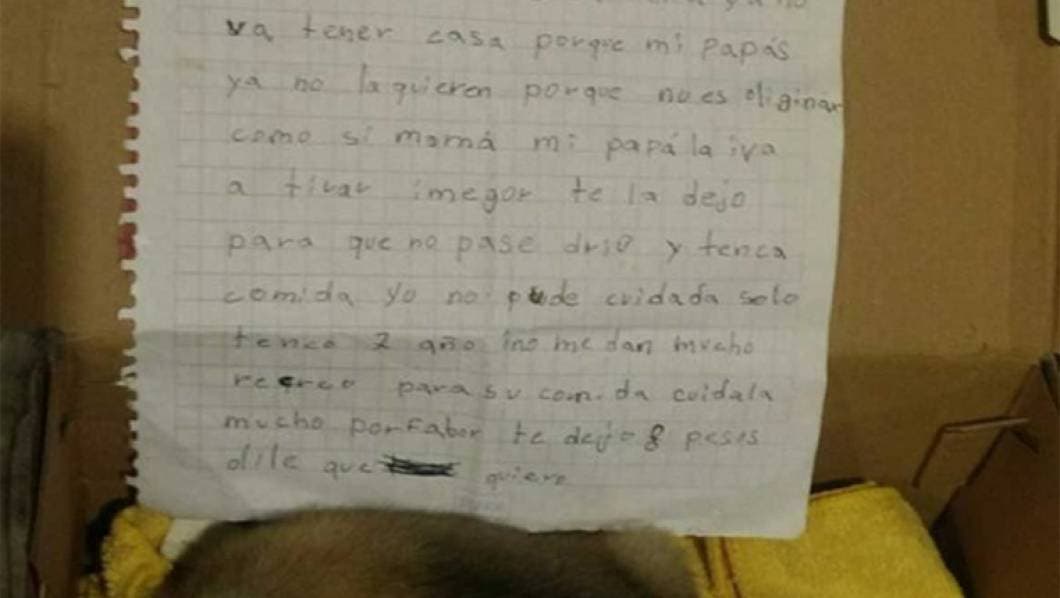 va tener casa porque mi papás
ya no la quieren porque no es oliginar
como si mamá mi papá la iva
a tirar imegor te la dejo
para que no pase drio y tenca
comida yo no pude cuidada solo
tenco 2 año ino me dan mucho
recreo para su comida cuidala
mucho porfabor te dejo 8 pesos
dile que quiero